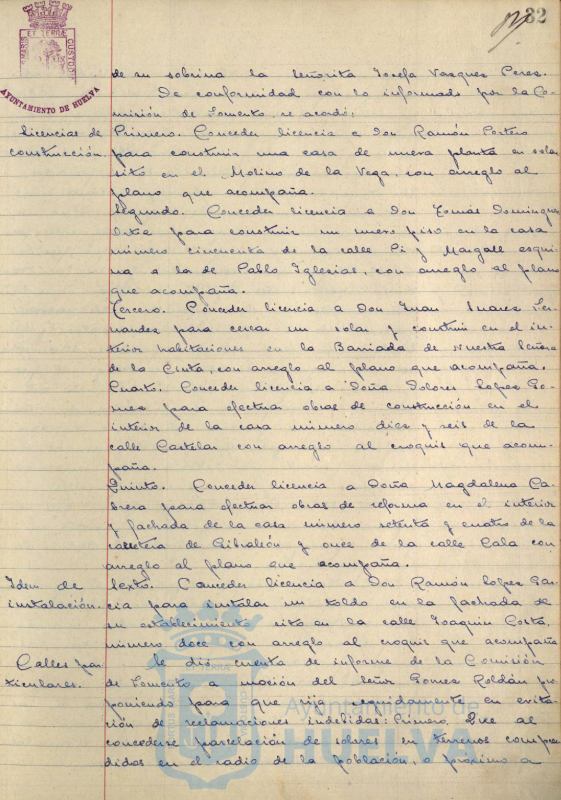 32
PORTUS MARIS ET TERRAE CUSTODIA
AYUNTAMIENTO DE HUELVA
de su sobrina la señorita Josefa Vazquez Perez.
De conformidad con lo informado por la Co-
misión de Fomento, se acordó:
Licencias de
construcción.
Primero. Conceder licencia a Don Ramón Portero
para construir una casa de nueva planta en solar
sito en el Molino de la Vega, con arreglo al
plano que acompaña.
Segundo. Conceder licencia a Don Tomás Dominguez
Orta para construir un nuevo piso en la casa
número cincuenta de la calle Pi y Margall esqui-
na a la de Pablo Iglesias, con arreglo al plano
que acompaña.
Tercero. Conceder licencia a Don Juan Suarez Fer-
nandez para cercar un solar y construir en el in-
terior habitaciones en la Barriada de Nuestra Señora
de la Cinta, con arreglo al plano que acompaña.
Cuarto. Conceder licencia a Doña Dolores Lopez Go-
mez para efectuar obras de construcción en el
interior de la casa número diez y seis de la
calle Castelar con arreglo al croquis que acom-
paña.
Quinto. Conceder licencia a Doña Magdalena Ca-
brera para efectuar obras de reforma en el interior
y fachada de la casa número setenta y cuatro de la
carretera de Gibraleón y once de la calle Cala con
arreglo al plano que acompaña.
Idem de
instalación.
Sexto. Conceder licencia a Don Ramón Lopez Gar-
cia para instalar un toldo en la fachada de
su establecimiento sito en la calle Joaquin Costa,
número doce con arreglo al croquis que acompaña
Calles par-
ticulares.
Se dió cuenta de informe de la Comisión
de Fomento a moción del Señor Gomez Roldán pro-
poniendo para que rija en evita-
ción de reclamaciones indebidas: Primero. Que al
concederse parcelación de solares en terrenos compren-
didos en el radio de la población, o próximo a
Ayuntamiento de
HUELVA